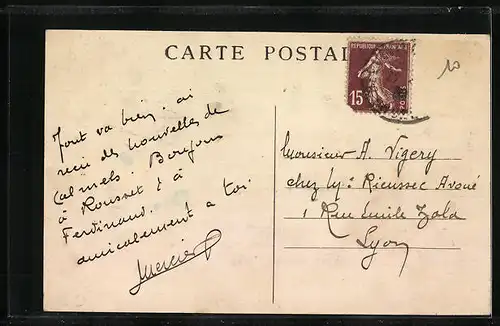 CARTE POSTALE
REPUBLIQUE FRANCAISE
15
POSTES
10
Tout va bien. ai
reçu des nouvelles de
Calmels. Bonjour
à Rousset & à
Ferdinand.
amicalement a toi
Mercier
Monsieur A. Vigery
chez Me Rieussec Avoué
1 Rue Emile Zola
Lyon